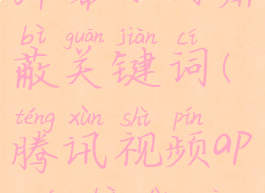 bì guān jiàn cí
蔽关键词(
téng xùn shì pín
腾讯视频ap